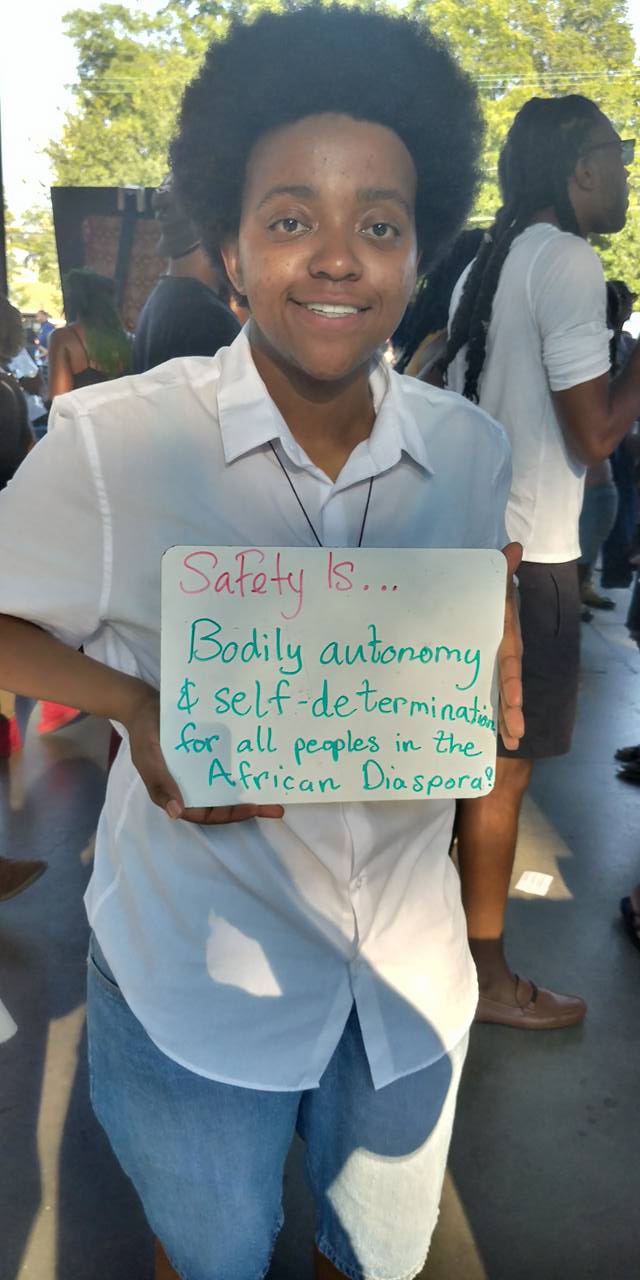 Safety Is...
Bodily autonomy
& self-determination
for all peoples in the
African Diaspora!